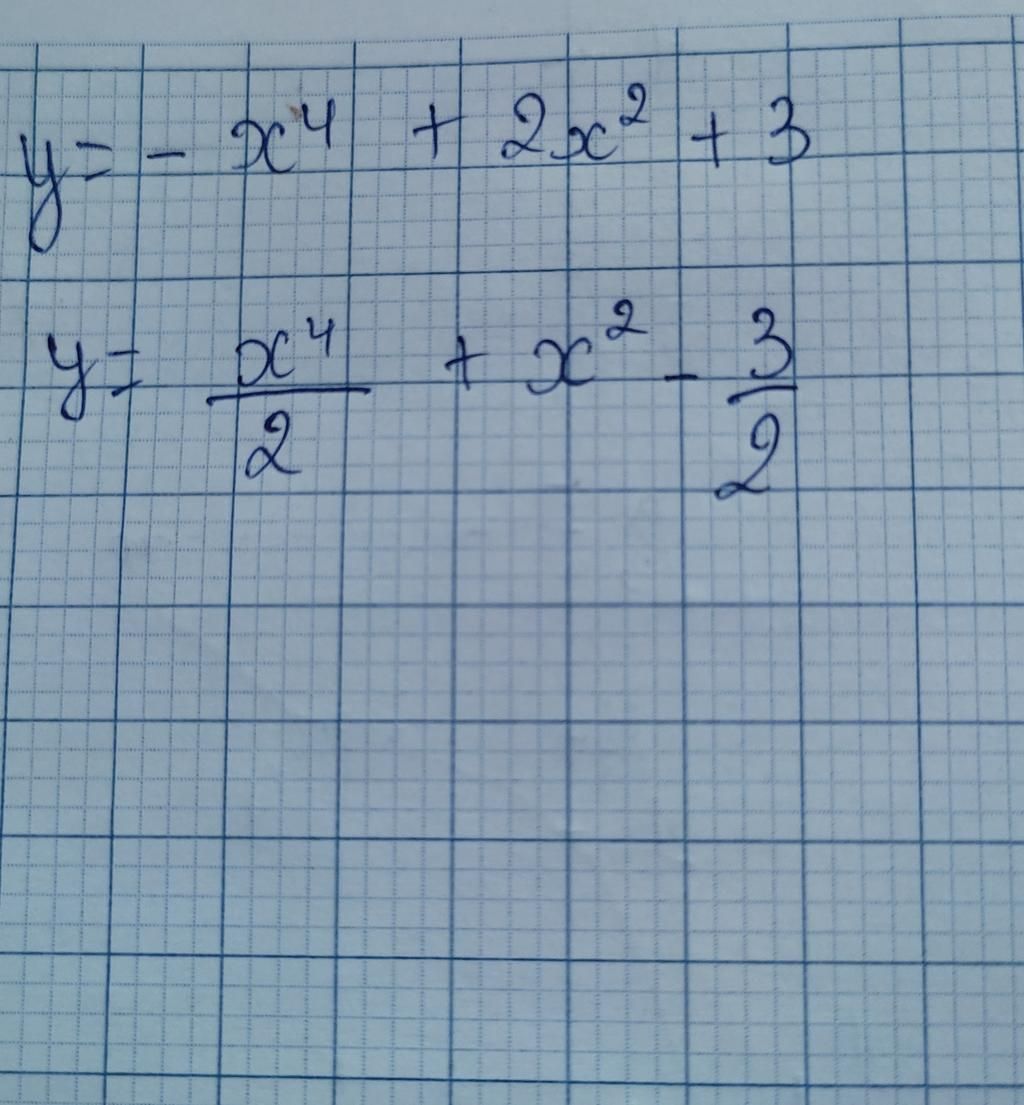 y = - x⁴ + 2x² + 3
y = x⁴/2 + x² - 3/2